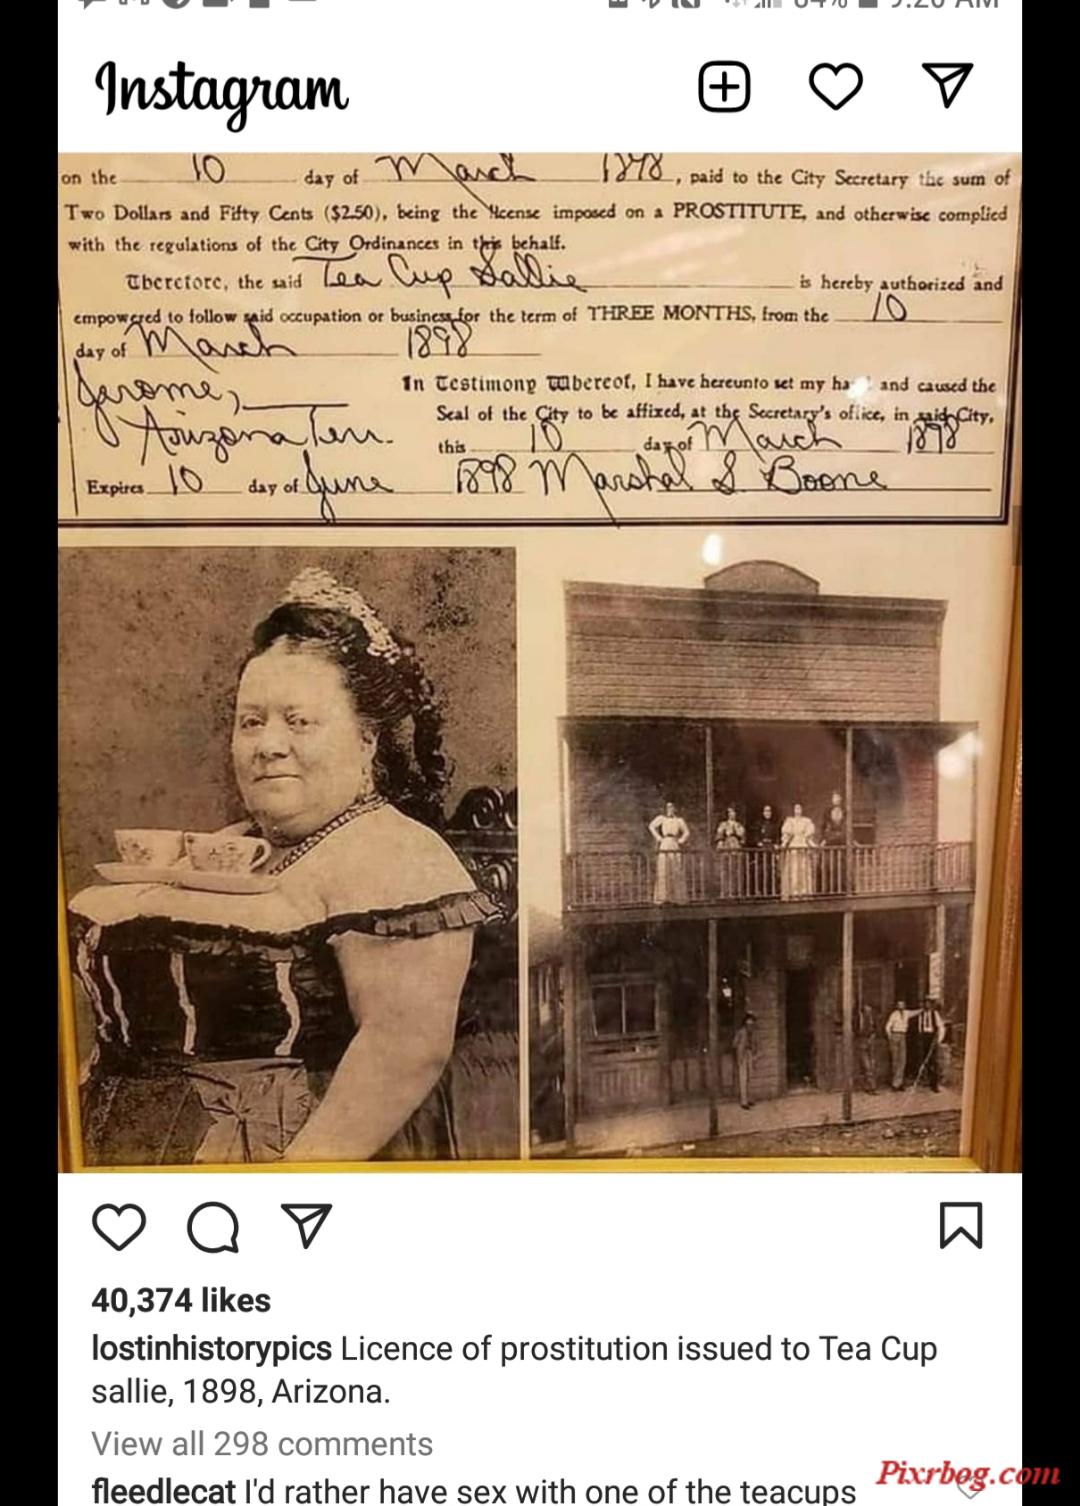 9:20 AM
Instagram
on the 10 day of March 1898, paid to the City Secretary the sum of
Two Dollars and Fifty Cents ($2.50), being the license imposed on a PROSTITUTE, and otherwise complied
with the regulations of the City Ordinances in this behalf.
Therefore, the said Tea Cup Sallie is hereby authorized and
empowered to follow said occupation or business for the term of THREE MONTHS, from the 10
day of March 1898
Jerome,
Arizona Terr.
In Testimony Whereof, I have hereunto set my hand and caused the
Seal of the City to be affixed, at the Secretary's office, in said City,
this 10 day of March 1898
Expires 10 day of June 1898 Marshal S Boone
40,374 likes
lostinhistorypics Licence of prostitution issued to Tea Cup
sallie, 1898, Arizona.
View all 298 comments
fleedlecat I'd rather have sex with one of the teacups
Pixrbog.com